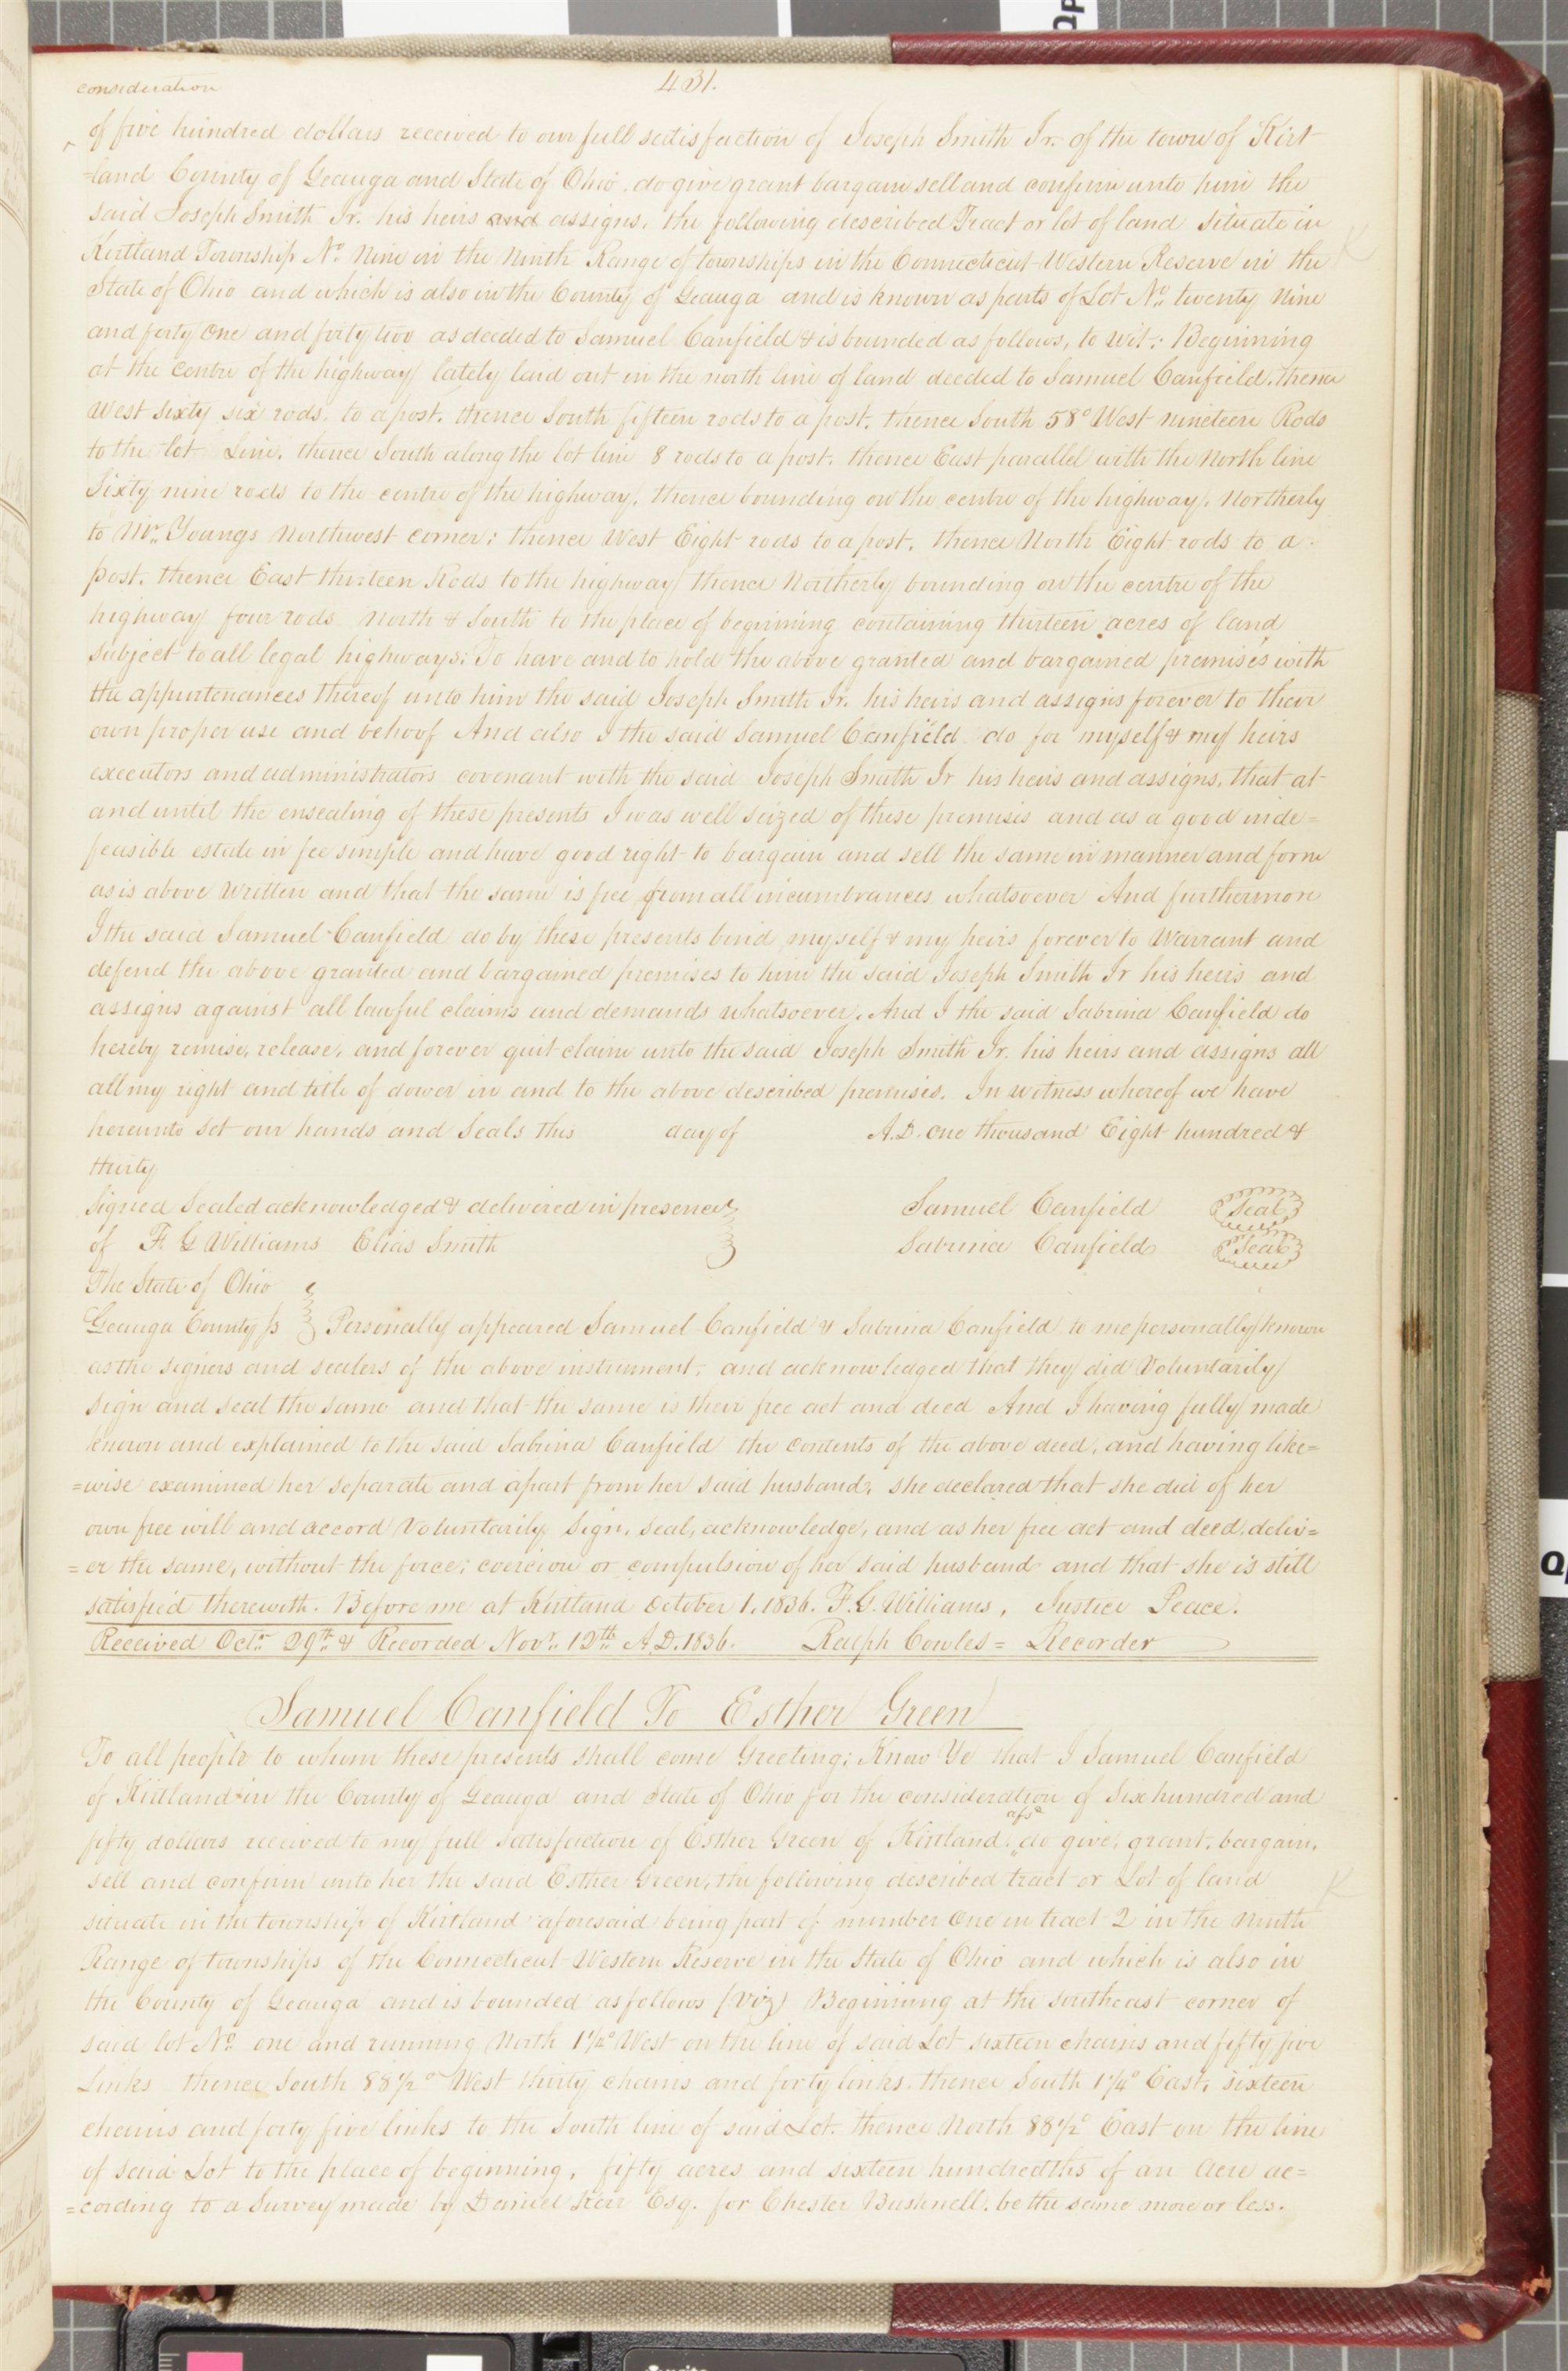 431.
consideration
‸ of five hundred dollars received to our full satisfaction of Joseph Smith Jr. of the town of Kirt-
=land County of Geauga and State of Ohio. do give grant bargain sell and confirm unto him the
said Joseph Smith Jr. his heirs and assigns, the following described Tract or lot of land situate in
Kirtland Township No. Nine in the Ninth Range of townships in the Connecticut Western Reserve in the
State of Ohio and which is also in the County of Geauga and is known as parts of Lot No. twenty Nine
and forty One and forty two as deeded to Samuel Canfield & is bounded as follows, to wit: Beginning
at the Centre of the highway lately laid out in the north line of land deeded to Samuel Canfield, thence
West sixty six rods. to a post. thence South fifteen rods to a post. thence South 58° West nineteen Rods
to the lot Line. thence South along the lot line 8 rods to a post. thence East parallel with the North line
Sixty nine rods to the centre of the highway, thence bounding on the centre of the highway, Northerly
to Mr. Youngs Northwest corner; thence West Eight rods to a post, thence North Eight rods to a
post. thence East thirteen Rods to the highway thence Northerly bounding on the centre of the
highway four rods North & South to the place of beginning containing thirteen acres of land
subject to all legal highways: To have and to hold the above granted and bargained premises with
the appurtenances thereof unto him the said Joseph Smith Jr. his heirs and assigns forever to their
own proper use and behoof And also I the said Samuel Canfield do for myself & my heirs
executors and administrators covenant with the said Joseph Smith Jr his heirs and assigns, that at
and until the ensealing of these presents I was well seized of these premises and as a good inde=
feasible estate in fee simple and have good right to bargain and sell the same in manner and form
as is above written and that the same is free from all incumbrances whatsoever And furthermore
I the said Samuel Canfield do by these presents bind myself & my heirs forever to Warrant and
defend the above granted and bargained premises to him the said Joseph Smith Jr his heirs and
assigns against all lawful claims and demands whatsoever. And I the said Sabrina Canfield do
hereby remise, release, and forever quit claim unto the said Joseph Smith Jr. his heirs and assigns all
all my right and title of dower in and to the above described premises. In witness whereof we have
hereunto set our hands and Seals this day of A.D. One thousand Eight hundred &
thirty
Signed Sealed acknowledged & delivered in presence Samuel Canfield Seal
of F. G Williams Elias Smith Sabrina Canfield Seal
The State of Ohio
Geauga County ss Personally appeared Samuel Canfield & Sabrina Canfield to me personally known
as the signers and sealers of the above instrument, and acknowledged that they did Voluntarily
sign and seal the same and that the same is their free act and deed And I having fully made
known and explained to the said Sabrina Canfield the contents of the above deed, and having like=
=wise examined her separate and apart from her said husband, she declared that she did of her
own free will and accord Voluntarily, Sign, seal, acknowledge, and as her free act and deed, deliv=
=er the same, without the force; coercion or compulsion of her said husband and that she is still
satisfied therewith. Before me at Kirtland October 1, 1836. F. G. Williams, Justice Peace.
Received Octr. 29th & Recorded Novr. 12th A.D. 1836. Ralph Cowles = Recorder
Samuel Canfield To Esther Green
To all people to whom these presents shall come Greeting; Know Ye that I Samuel Canfield
of Kirtland in the County of Geauga and State of Ohio for the consideration of Six hundred and
fifty dollars received to my full satisfaction of Esther Green of Kirtland. afsd do give, grant, bargain,
sell and confirm unto her the said Esther Green, the following described tract or Lot of land
situate in the township of Kirtland aforesaid being part of number One in tract 2 in the Ninth
Range of townships of the Connecticut Western Reserve in the State of Ohio and which is also in
the County of Geauga and is bounded as follows (viz) Beginning at the southeast corner of
said lot No. one and running North 1½° West on the line of said Lot sixteen chains and fifty five
Links thence South 88½° West thirty chains and forty links. thence South 1¼° East, sixteen
chains and forty five links to the South line of said Lot. thence North 88½° East on the line
of said Lot to the place of beginning, fifty acres and sixteen hundredths of an Acre ac=
=cording to a Survey made by Daniel Kerr Esq. for Chester Bushnell. be the same more or less.